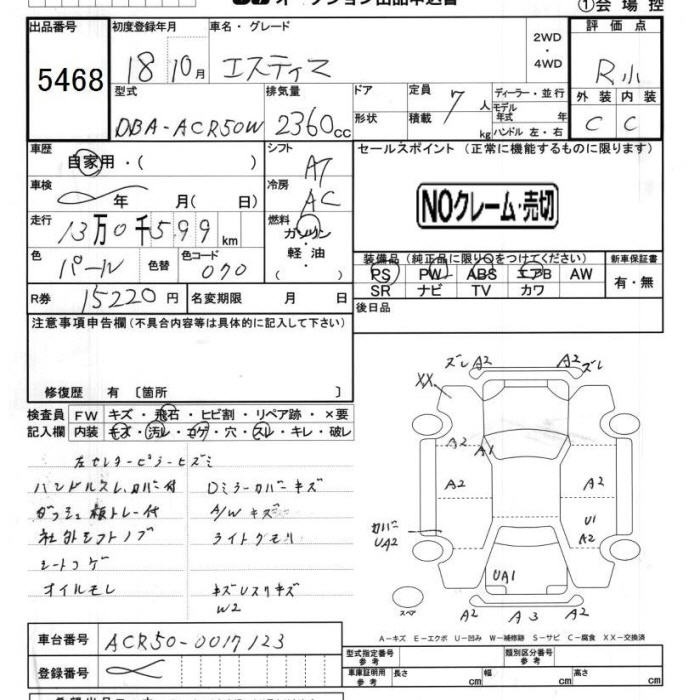 オークション出品申込書
①会場控
出品番号 初度登録年月 車名・グレード 2WD・4WD 評価点
5468 18 10月 エスティマ R小
型式 排気量 ドア 定員 7 人 ディーラー・並行 外装 内装
DBA-ACR50W 2360cc 形状 積載 kg モデル年式 年 ハンドル 左・右 C C
車歴 自家用・( ) シフト AT セールスポイント (正常に機能するものに限ります)
車検 年 月( 日) 冷房 AC
NOクレーム・売切
走行 13万0千599km 燃料 ガソリン 軽油 ( )
色 パール 色替 色コード 070
装備品(純正品に限り○をつけてください) 新車保証書
PS PW ABS エアB AW 有・無
SR ナビ TV カワ
R券 15220円 名変期限 月 日
後日品
注意事項申告欄(不具合内容等は具体的に記入して下さい)
修復歴 有 〔箇所 〕
検査員記入欄
FW キズ・飛石・ヒビ割・リペア跡・×要
内装 キズ・汚レ・コゲ・穴・スレ・キレ・破レ
左センターピラーヒズミ
ハンドルスレ,カバー付 Dミラーカバーキズ
ダッシュ トレー付 A/Wキズ
社外シフトノブ ライトクモリ
シートコゲ
オイルモレ
W2
ズレ A2 A2 ズレ
XX
A2 A1
A2 A2
カバー UA2 U1 A2
UA1
スペア A2 A3 A2
A-キズ E-エクボ U-凹み W-補修跡 S-サビ C-腐食 XX-交換済
車台番号 ACR50-0017123
型式指定番号 参考 類別区分番号 参考
登録番号
車庫証明用 参考 長さ cm 幅 cm 高さ cm